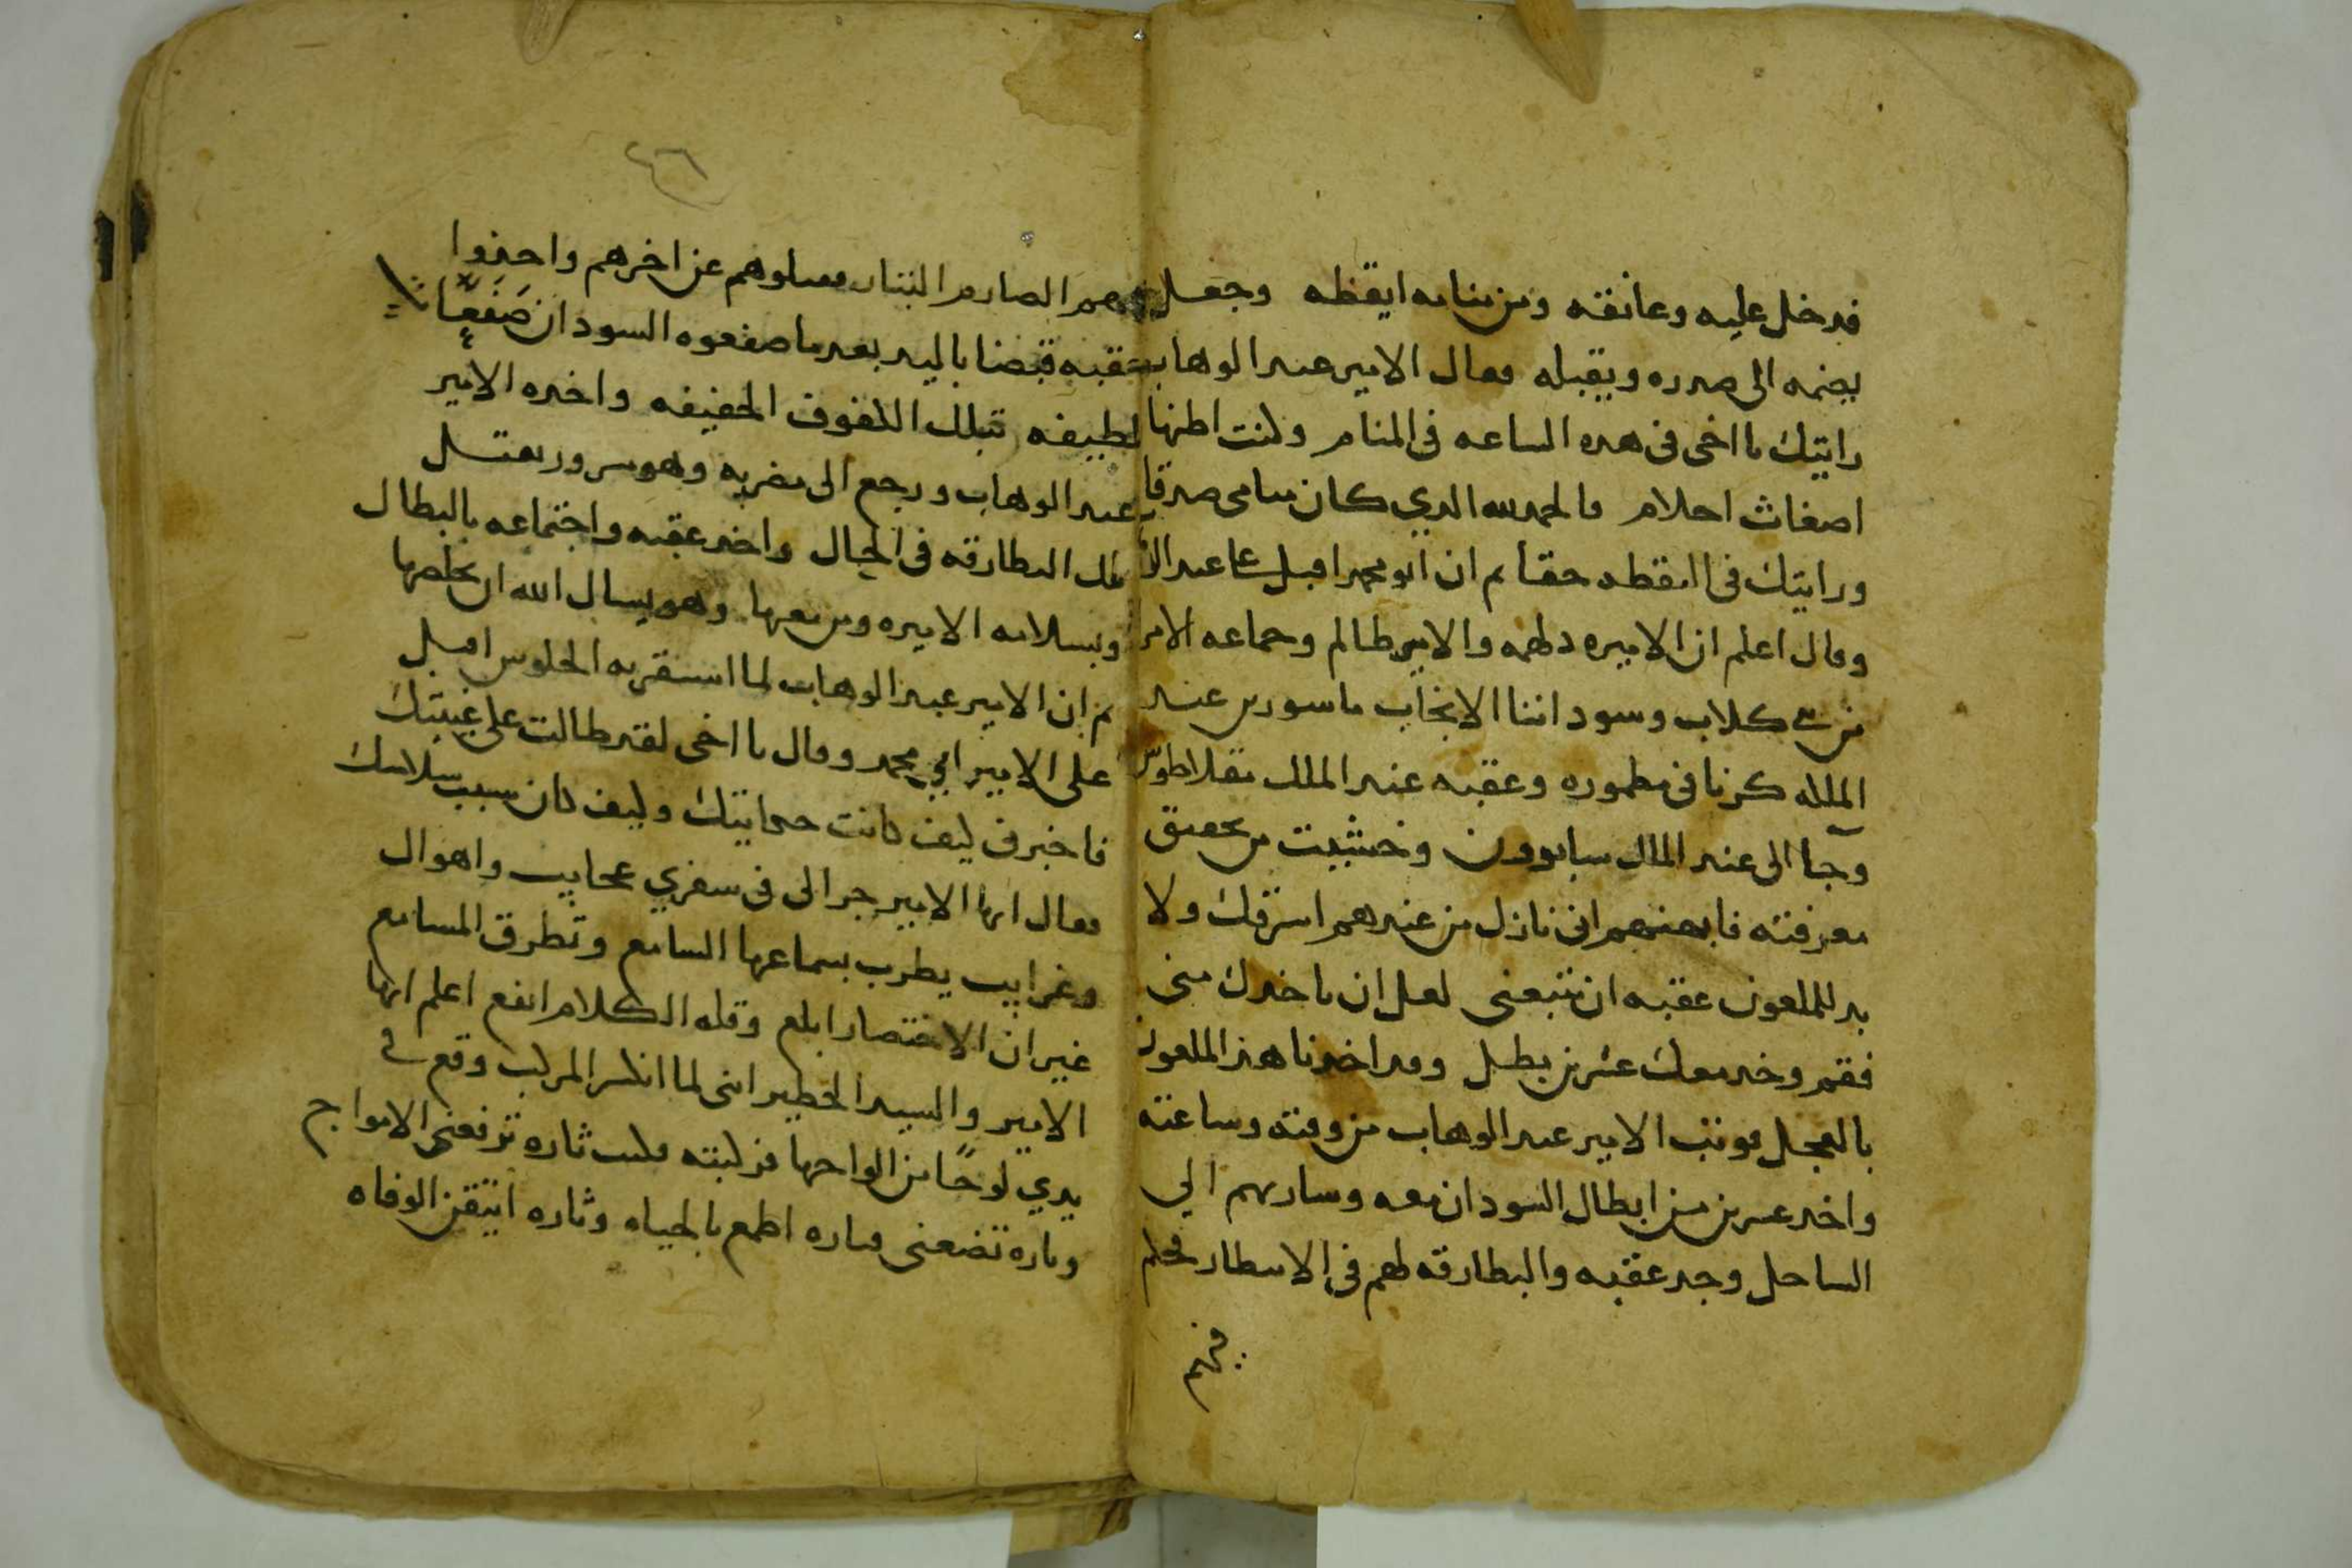 فدخل عليه وعانقه ومن منامه ايقظه وجعل
يضمه الى صدره ويقبله فقال الامير عبد الوهاب
رايتك يا اخى فى هده الساعه فى المنام وكنت اظنها
اضغاث احلام فالحمد لله الدي كان منامى صدقا
ورايتك فى اليقظه حقا ثم ان ابو محمد اقبل على عبد
وقال اعلم ان الاميره دلهمه والامير ظالم وجماعه الامرا
من بنى كلاب وسوداننا الانجاب ماسورين عند
الملكه كرنا فى مطموره وعقبه عند الملك مقلاطوس
وجا الى عند الملك وخشيت من تحقيق
معرفته فاوهمتهم انى نازل من عندهم اسرقك ولا
بد للملعون عقبه ان يتبعنى لعل ان ياخدك منى
فقم وخد معك عشرين بطل وقد اخدنا هذا الملعون
بالعجل فوثب الامير عبد الوهاب من وقته وساعته
واخد عشرين من ابطال السودان معه وسار بهم الي
الساحل وجد عقبه والبطارقه لهم فى الانتظار فحكم
فيهم
٢٦
فيهم الصارم البتار فقتلوهم عن اخرهم واخذوا
عقبه قبضا باليد بعد ما صفعوه السودان صَفَعًّا
لطيفه بتلك الكفوف الخفيفه واخده الامير
عبد الوهاب ورجع الى مضربه وهو مسرور بقتل
تلك البطارقه فى الحال واخد عقبه واجتماعه بالبطال
وبسلامه الاميره ومن معها وهو يسال الله ان يخلصها
ثم ان الامير عبد الوهاب لما استقر به الجلوس اقبل
على الامير ابي محمد وقال يا اخى لقد طالت على غيبتك
فاخبرنى كيف كانت حكايتك وكيف كان سبب سلامتك
فقال ايها الامير جرا لى فى سفري عجايب واهوال
وغرايب يطرب بسماعها السامع وتطرق المسامع
غير ان الاختصار ابلغ وقله الكلام انفع اعلم ايها
الامير والسيد الخطير اننى لما انكسر المركب وقع فى
يدي لوحًا من الواحها فركبته فكنت تاره ترفعنى الامواج
وتاره تضعنى فتاره اطمع بالحياه وتاره اتيقن الوفاه